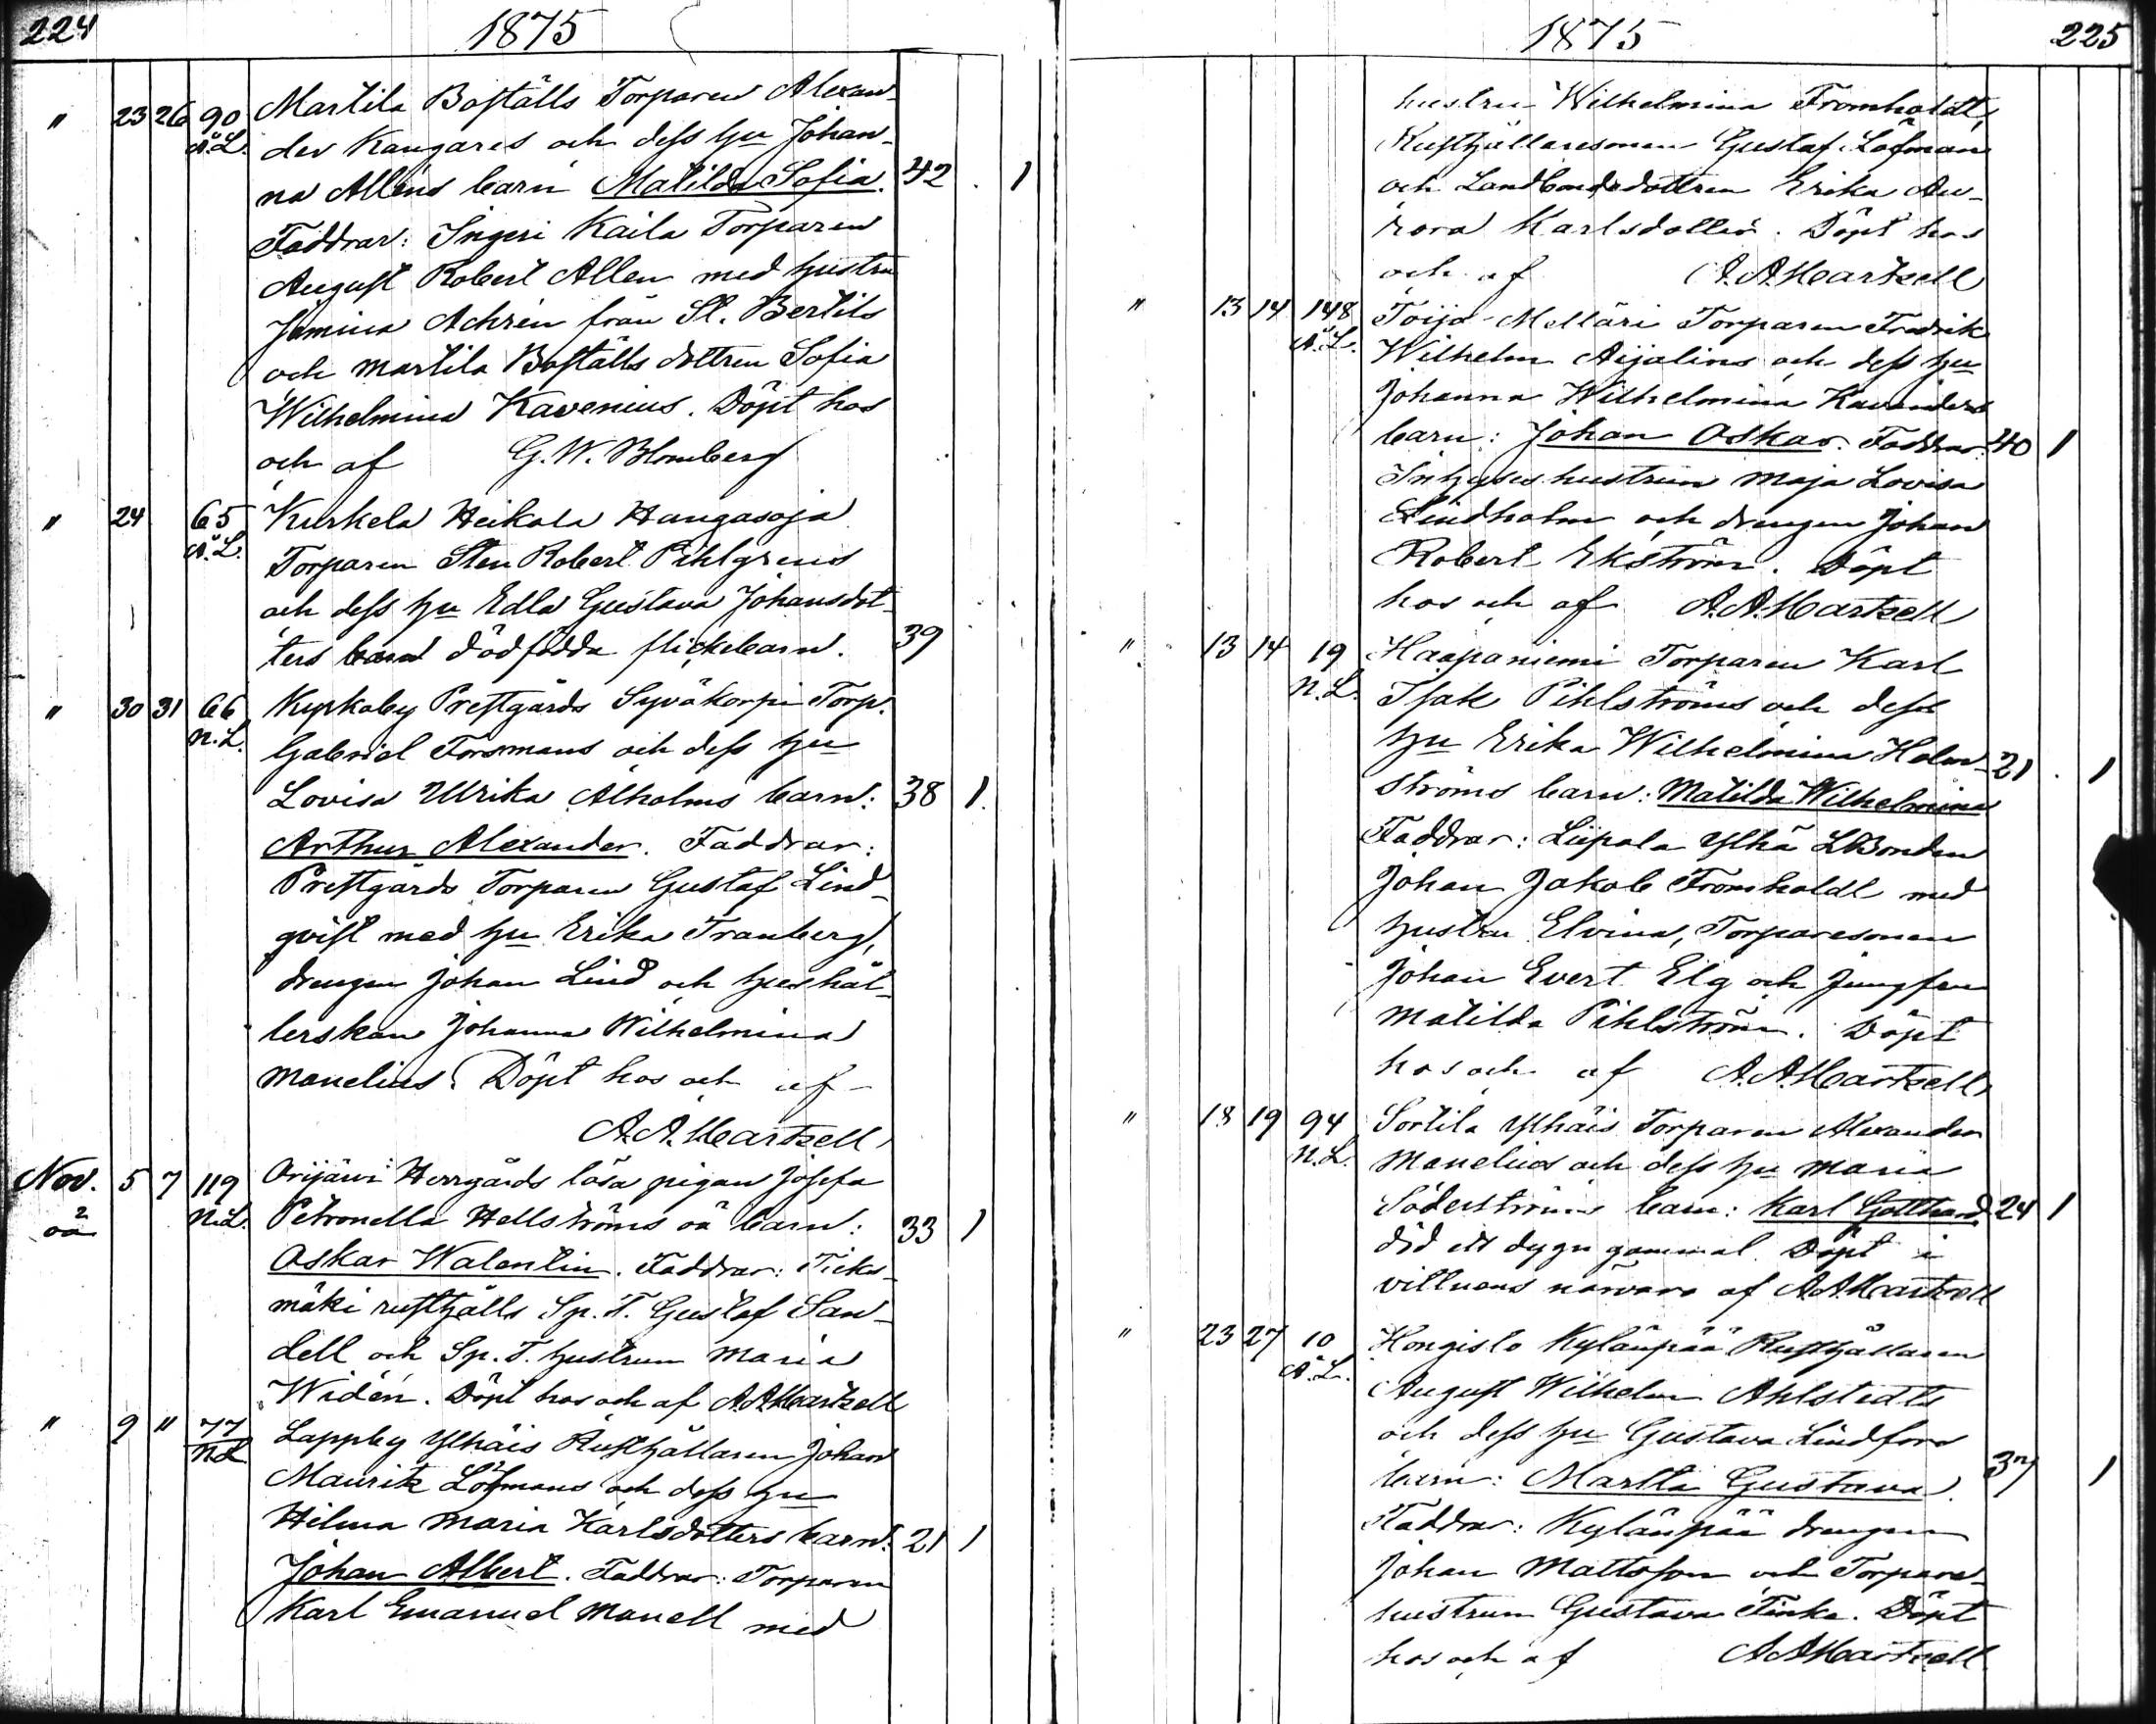 224
1875
" 23 26 90 Martila Boställs Torparen Alexan-
Ä.L. der Kangares och dess hu Johan-
na Alléns barn Matilda Sofia. 42 1
Faddrar: Ingeri Kaila Torparen
August Robert Allen med hustru
Jemina Achrén från St. Bertils
och Martila Boställs dottren Sofia
Wilhelmina Kavenius. Döpt hos
och af G.W. Blomberg
" 24 65 Kurkela Heikola Hangasoja
Ä.L. Torparen Sten Robert Pihlgrens
och dess hu Edla Gustava Johansdot-
ters barn dödfödda flickebarn. 39
" 30 31 66 Kyrkoby Prestgårds Syväkorpi Torp.
N.L. Gabriel Forsmans och dess hu
Lovisa Ulrika Alholms barn: 38 1.
Arthur Alexander. Faddrar:
Prestgårds Torparen Gustaf Lind-
qvist med hu Erika Tranberg,
drengen Johan Lind och hushål-
lerskan Johanna Wilhelmina
Manelius. Döpt hos och af
A.A. Hartzell
Nov. 5 7 119 Orijärvi Herrgårds lösa pigan Josefa
2 oä N.L. Petronella Hellströms oä barn: 33 1
Oskar Walentin. Faddrar:
mäki rusthålls Sp. T. Gustaf San-
dell och Sp. T. hustrun Maria
Widén. Döpt hos och af A.A. Hartzell
" 9 " 77 Lappby Ylhäis Rusthållaren Johan
N.L. Maurits Löfmans och dess hu
Hilma Maria Karlsdotters barn: 21 1
Johan Albert. Faddrar: Torparen
Karl Emanuel Manell med
1875
225
hustru Wilhelmina Fromholdt,
Rusthållaresonen Gustaf Löfman
och Landbondedottren Erika Au-
rora Karlsdotter. Döpt hos
och af A.A. Hartzell
" 13 14 148 Toija Melläri Torparen Fredrik
Ä.L. Wilhelm Äijälins och dess hu
Johanna Wilhelmina Kavanders
barn: Johan Oskar. Faddrar: 40 1
Inhyses hustrun Maja Lovisa
Lindholm och drengen Johan
Robert Ekström. Döpt
hos och af A.A. Hartzell
" 13 14 19 Haapaniemi Torparen Karl
N.L. Isak Pihlströms och dess
hu Erika Wilhelmina Holm- 21 1
ströms barn: Matilda Wilhelmina
Faddrar: Liipola Ylhä LBonden
Johan Jakob Fromholdt med
hustru Elvina, Torparesonen
Johan Evert Elg och Jungfru
Matilda Pihlström. Döpt
hos och af A.A. Hartzell
" 18 19 94 Sortila Ylhäis Torparen Alexander
N.L. Manelius och dess hu Maria
Söderströms barn: Karl Gotthard 24 1
död ett dygn gammal. Döpt i
vittnens närvaro af A.A. Hartzell
" 23 27 10 Hongisto Kylänpää Rusthållaren
Ä.L. August Wilhelm Ahlstedts
och dess hu Gustava Lindfors
barn: Martta Gustava. 37 1
Faddrar: Kylänpää drengen
Johan Mattsson och Torpare-
hustrun Gustava Finke. Döpt
hos och af A.A. Hartzell